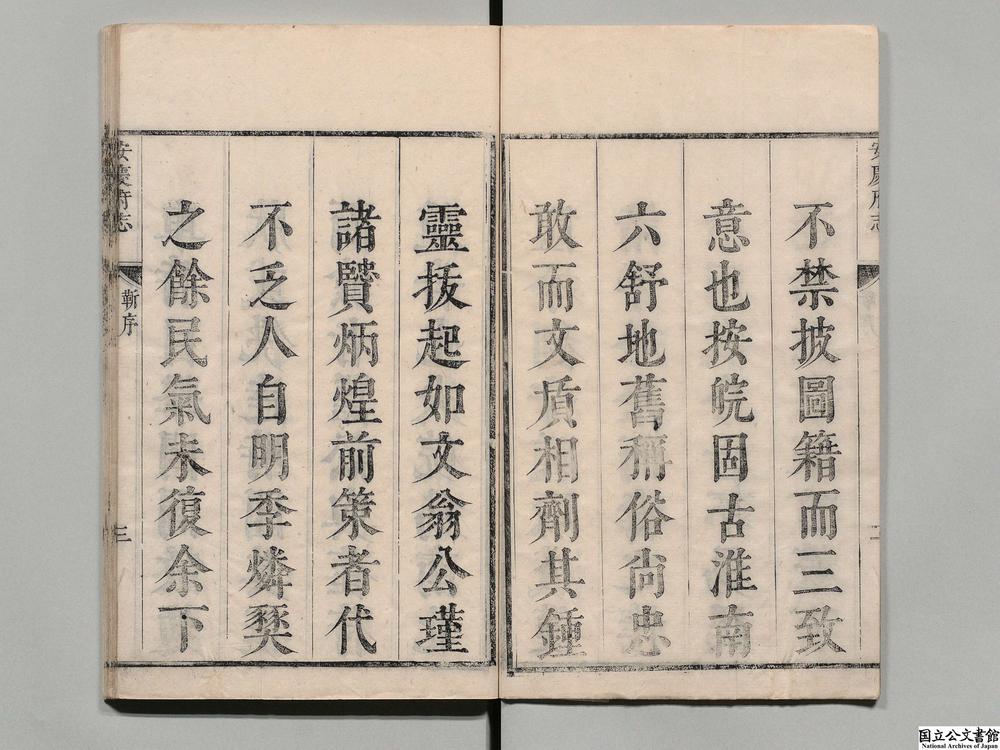 安慶府志
不禁披圖籍而三致
意也按皖固古淮南
六舒地舊稱俗尚忠
敢而文質相劑其鍾
靈拔起如文翁公瑾
諸賢炳煌前策者代
不乏人自明季燐燹
之餘民氣未復余下
安慶府志
靳序
三
国立公文書館
National Archives of Japan